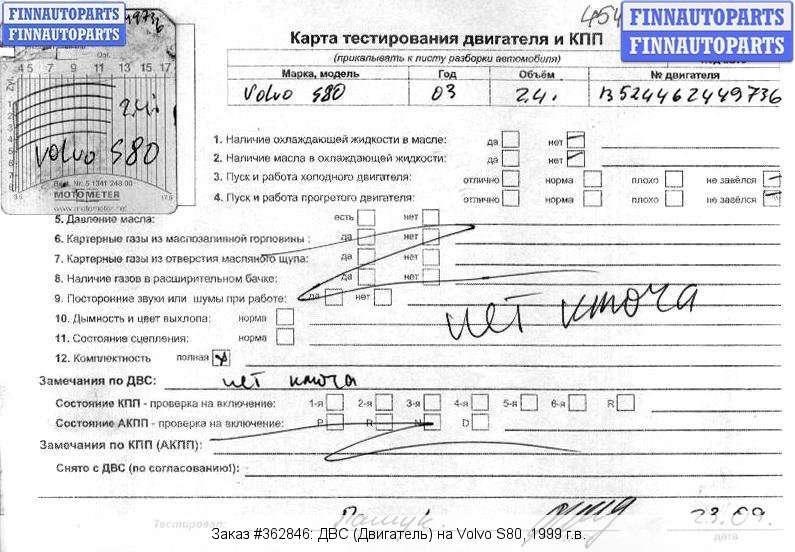 FINNAUTOPARTS
FINNAUTOPARTS
FINNAUTOPARTS
FINNAUTOPARTS
Карта тестирования двигателя и КПП
(прикалывать к листу разборки автомобиля)
Марка, модель Год Объём № двигателя
Volvo S80 03 2.4i B524462449736
4 5 7 9 11 13 15 17
2.4i
Volvo S80
Best. Nr. 5 1341 248 00
MOTOMETER
www.motometer.net
3.5 17.5
1. Наличие охлаждающей жидкости в масле: да нет
2. Наличие масла в охлаждающей жидкости: да нет
3. Пуск и работа холодного двигателя: отлично норма плохо не завёлся
4. Пуск и работа прогретого двигателя: отлично норма плохо не завёлся
5. Давление масла: есть нет
6. Картерные газы из маслозаливной горловины : да нет
7. Картерные газы из отверстия масляного щупа: да нет
8. Наличие газов в расширительном бачке: да нет
9. Посторонние звуки или шумы при работе: да нет
10. Дымность и цвет выхлопа: норма
нет ключа
11. Состояние сцепления: норма
12. Комплектность полная
Замечания по ДВС: нет ключа
Состояние КПП - проверка на включение: 1-я 2-я 3-я 4-я 5-я 6-я R
Состояние АКПП - проверка на включение: P R N D
Замечания по КПП (АКПП):
Снято с ДВС (по согласованию!):
Тестировал: 23.09.
дата
Заказ #362846: ДВС (Двигатель) на Volvo S80, 1999 г.в.